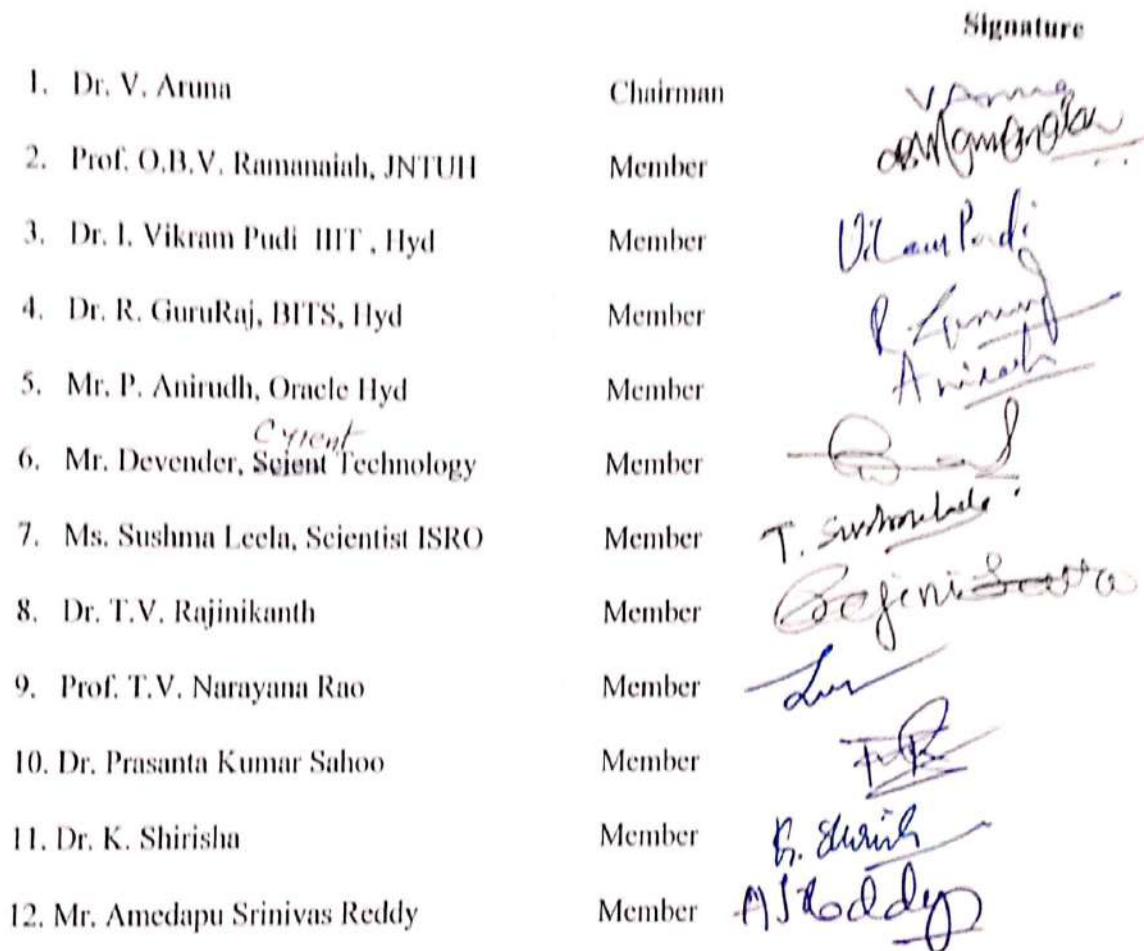 Signature
1. Dr. V. Aruna Chairman V Aruna
2. Prof. O.B.V. Ramanaiah, JNTUH Member
3. Dr. I. Vikram Pudi IIIT , Hyd Member Vikram Pudi
4. Dr. R. GuruRaj, BITS, Hyd Member
5. Mr. P. Anirudh, Oracle Hyd Member Anirudh
Cyient
6. Mr. Devender, Scient Technology Member
7. Ms. Sushma Leela, Scientist ISRO Member T. Sushmaleela
8. Dr. T.V. Rajinikanth Member
9. Prof. T.V. Narayana Rao Member
10. Dr. Prasanta Kumar Sahoo Member
11. Dr. K. Shirisha Member
12. Mr. Amedapu Srinivas Reddy Member ASReddy